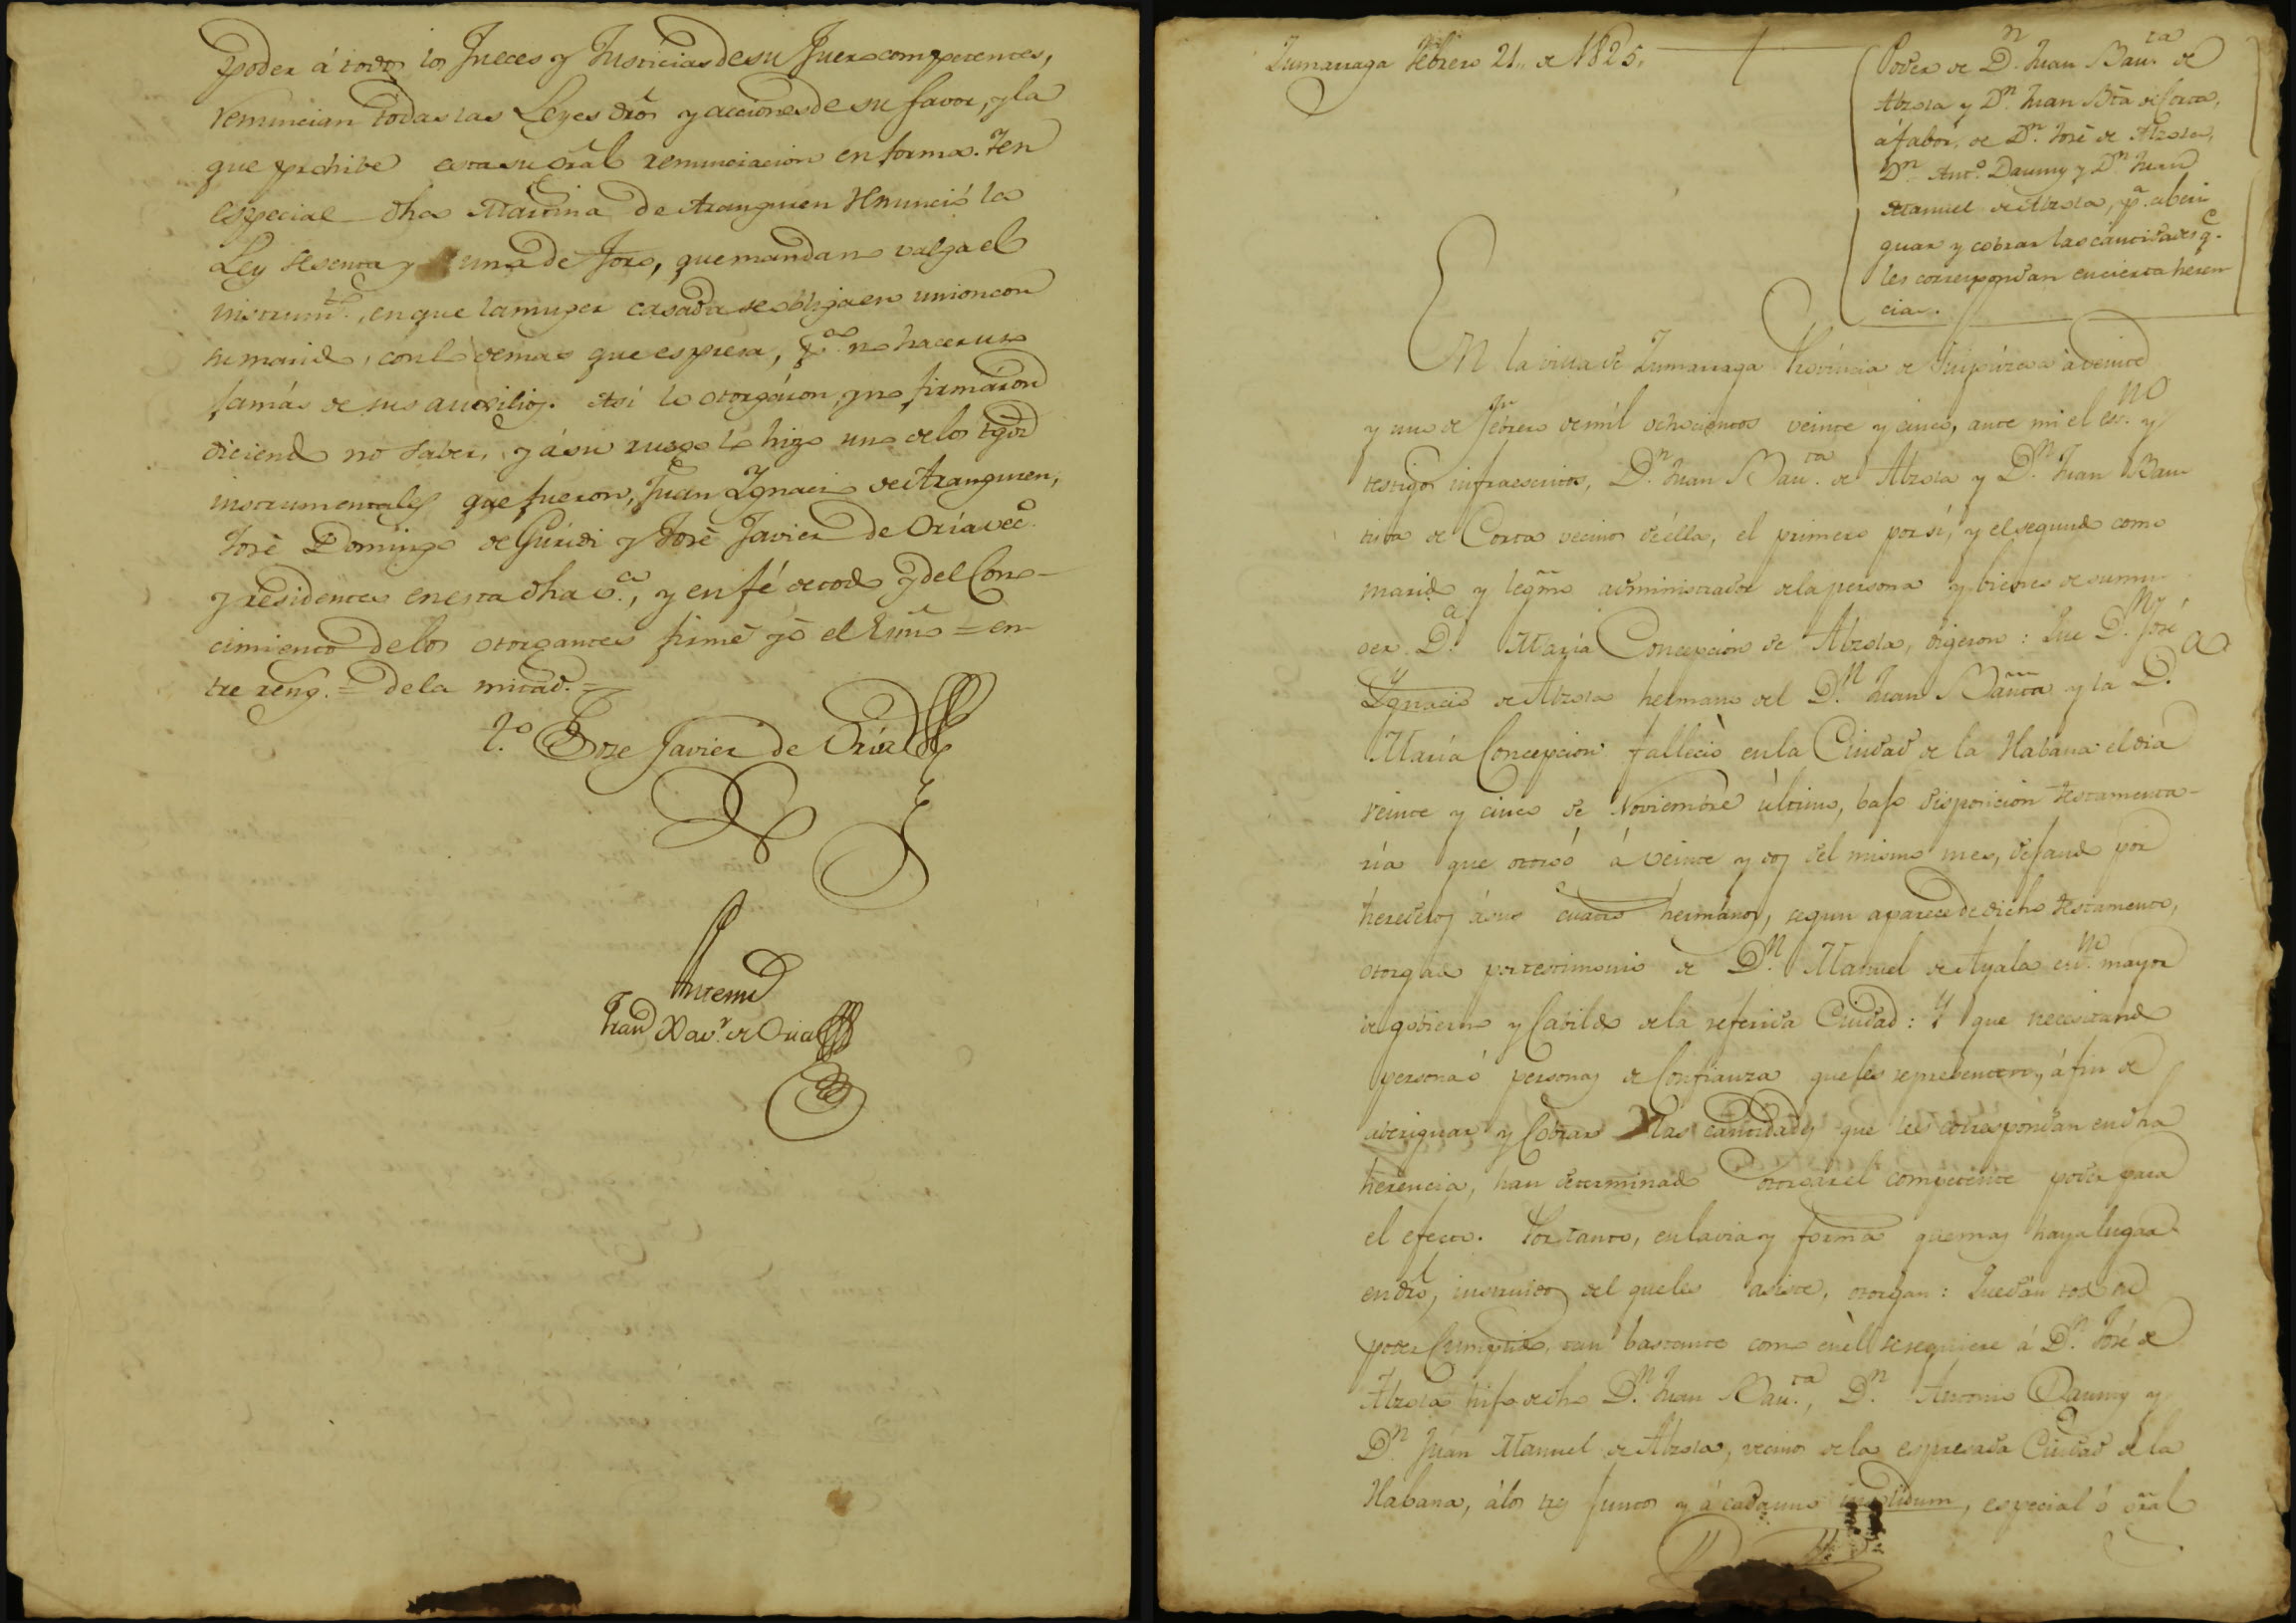 poder á todos los Jueces y Justicias de su fuero competentes,
renuncian todas las Leyes dros y acciones de su favor, y la
que prohibe esta su gral renunciacion en forma. Y en
especial dha Martina de Aranguren renunció la
Ley sesenta y una de Toro, que mandan valga el
instrumto. en que la muger casada se obliga en union con
su marido, con lo demas que espresa, pa. no hacer uso
jamás de sus auxilios. Asi lo otorgáron, y no firmáron
diciendo no saber, y á su ruego lo hizo uno de los tgos
instrumentales que fueron, Juan Ygnacio de Aranguren,
José Domingo de Gúridi y José Javier de Oria veco.
y residentes en esta dha va., y en fé de todo y del Cono-
cimiento de los otorgantes firmé yo el Esnō = en-
tre reng. = de la mitad. =
to. Jose Javier de Oria
Antemi
Franco Xavr. de Oria
Zumarraga Febrero 21,, de 1825.
Poder de Dn. Juan Bauta. de
Alzola y Dn. Juan Bta de Corta,
á fabor de Dn. José de Alzola,
Dn. Anto. Daumy y Dn. Juan
Manuel de Alzola, pa. aberi
guar y cobrar las cantidades qe.
les correspondan en cierta heren
cia.
En la villa de Zumarraga Provincia de Guipúzcoa à veinte
y uno de Febrero de mil ochocientos veinte y cinco, ante mi el esno. y
testigos infraescritos, Dn. Juan Bauta. de Alzola y Dn. Juan Bau
tista de Corta vecinos de élla, el primero por sí, y el segundo como
marido y legmo administrador de la persona y bienes de su mu-
ger Da. María Concepción de Alzola, digeron: Que Dn. José
Ygnacio de Alzola hermano del Dn. Juan Bauta y la Da.
María Concepcion falleció en la Ciudad de la Habana el dia
veinte y cinco de Noviembre último, bajo disposicion testamenta-
ria que otorgó á veinte y dos del mismo mes, dejando por
herederos á sus cuatro hermanos, segun aparece de dicho testamento,
otorgado por testimonio de Dn. Manuel de Ayala esno. mayor
de gobierno y Cabildo de la referida Ciudad: Y que necesitando
persona ó personas de Confianza que les representen, á fin de
aberiguar y Cobrar las cantidades que les correspondan en dha
herencia, han determinado otorgar el competente poder para
el efecto. Por tanto, en la via y forma que mas haya lugar
en dro, instruidos del que les asiste, otorgan: Que dán todo su
poder Cumplido, tan bastante como en èl se requiere á Dn. José de
Alzola hijo de dho Dn. Juan Bauta., Dn. Antonio Daumy y
Dn. Juan Manuel de Alzola, vecinos de la espresada Ciudad de la
Habana, á los tres juntos y á cada uno insolidum, especial ó gral